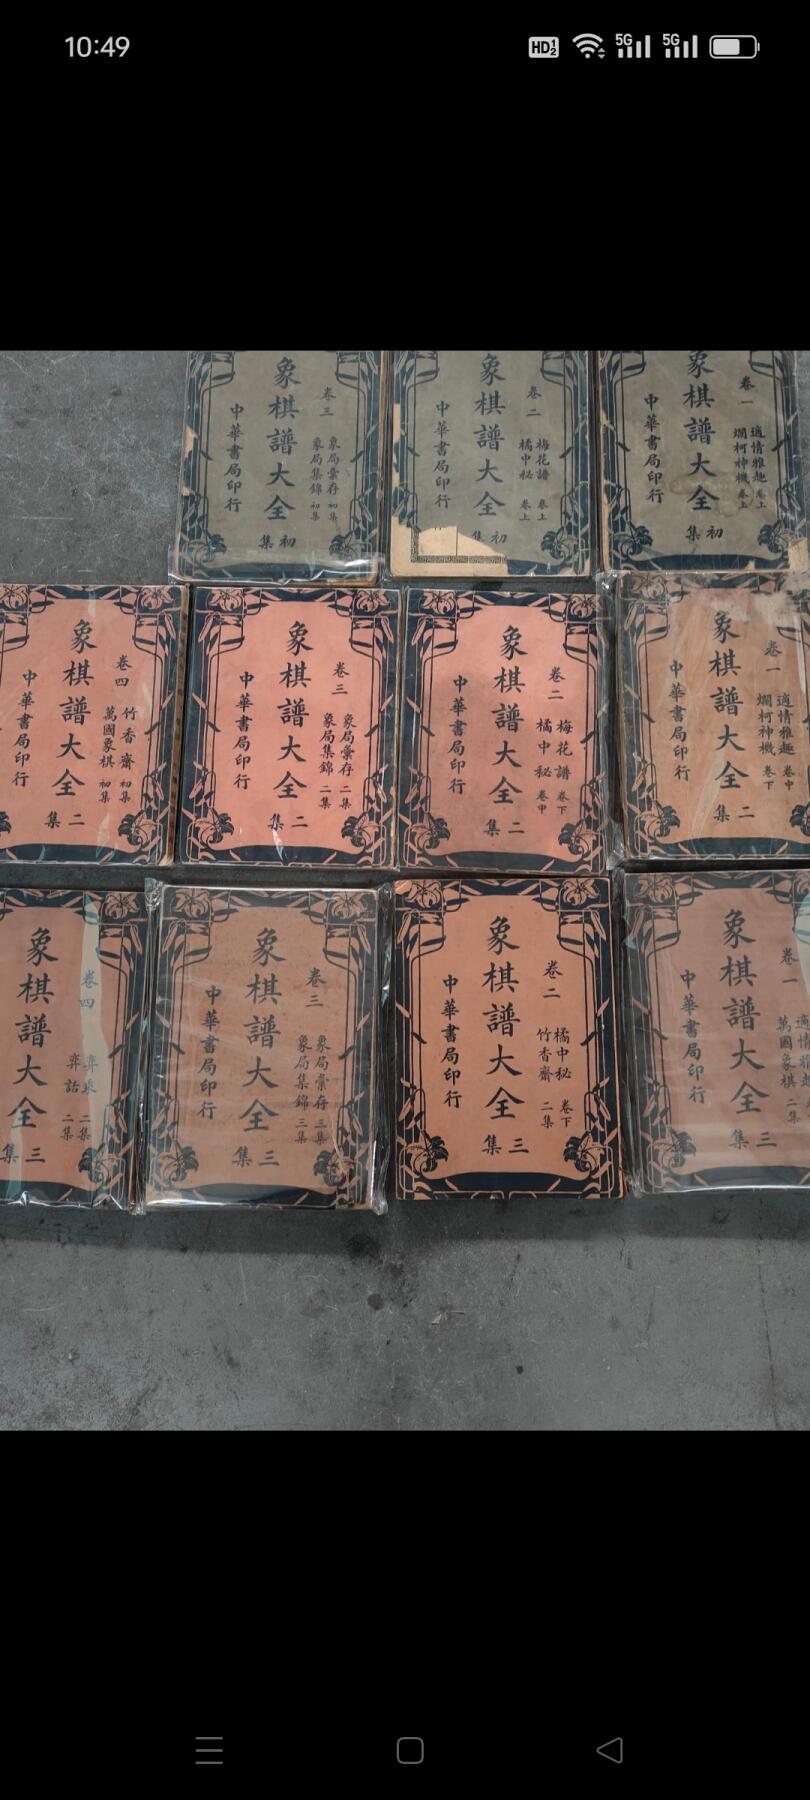 10:49
HD 1 2
5G
5G
象棋譜大全
卷三
象局彙存 初集
象局集錦 初集
初集
中華書局印行
象棋譜大全
卷二
梅花譜 卷上
橘中秘 卷上
初集
中華書局印行
象棋譜大全
卷一
適情雅趣 卷上
爛柯神機 卷上
初集
中華書局印行
象棋譜大全
卷四
竹香齋 初集
萬國象棋 初集
二集
中華書局印行
象棋譜大全
卷三
象局彙存 二集
象局集錦 二集
二集
中華書局印行
象棋譜大全
卷二
梅花譜 卷下
橘中秘 卷中
二集
中華書局印行
象棋譜大全
卷一
適情雅趣 卷中
爛柯神機 卷下
二集
中華書局印行
象棋譜大全
卷四
弈乘 二集
弈話 二集
三集
象棋譜大全
卷三
象局彙存 三集
象局集錦 三集
三集
中華書局印行
象棋譜大全
卷二
橘中秘 卷下
竹香齋 二集
三集
中華書局印行
象棋譜大全
卷一
適情雅
萬國象棋 二集
三集
中華書局印行